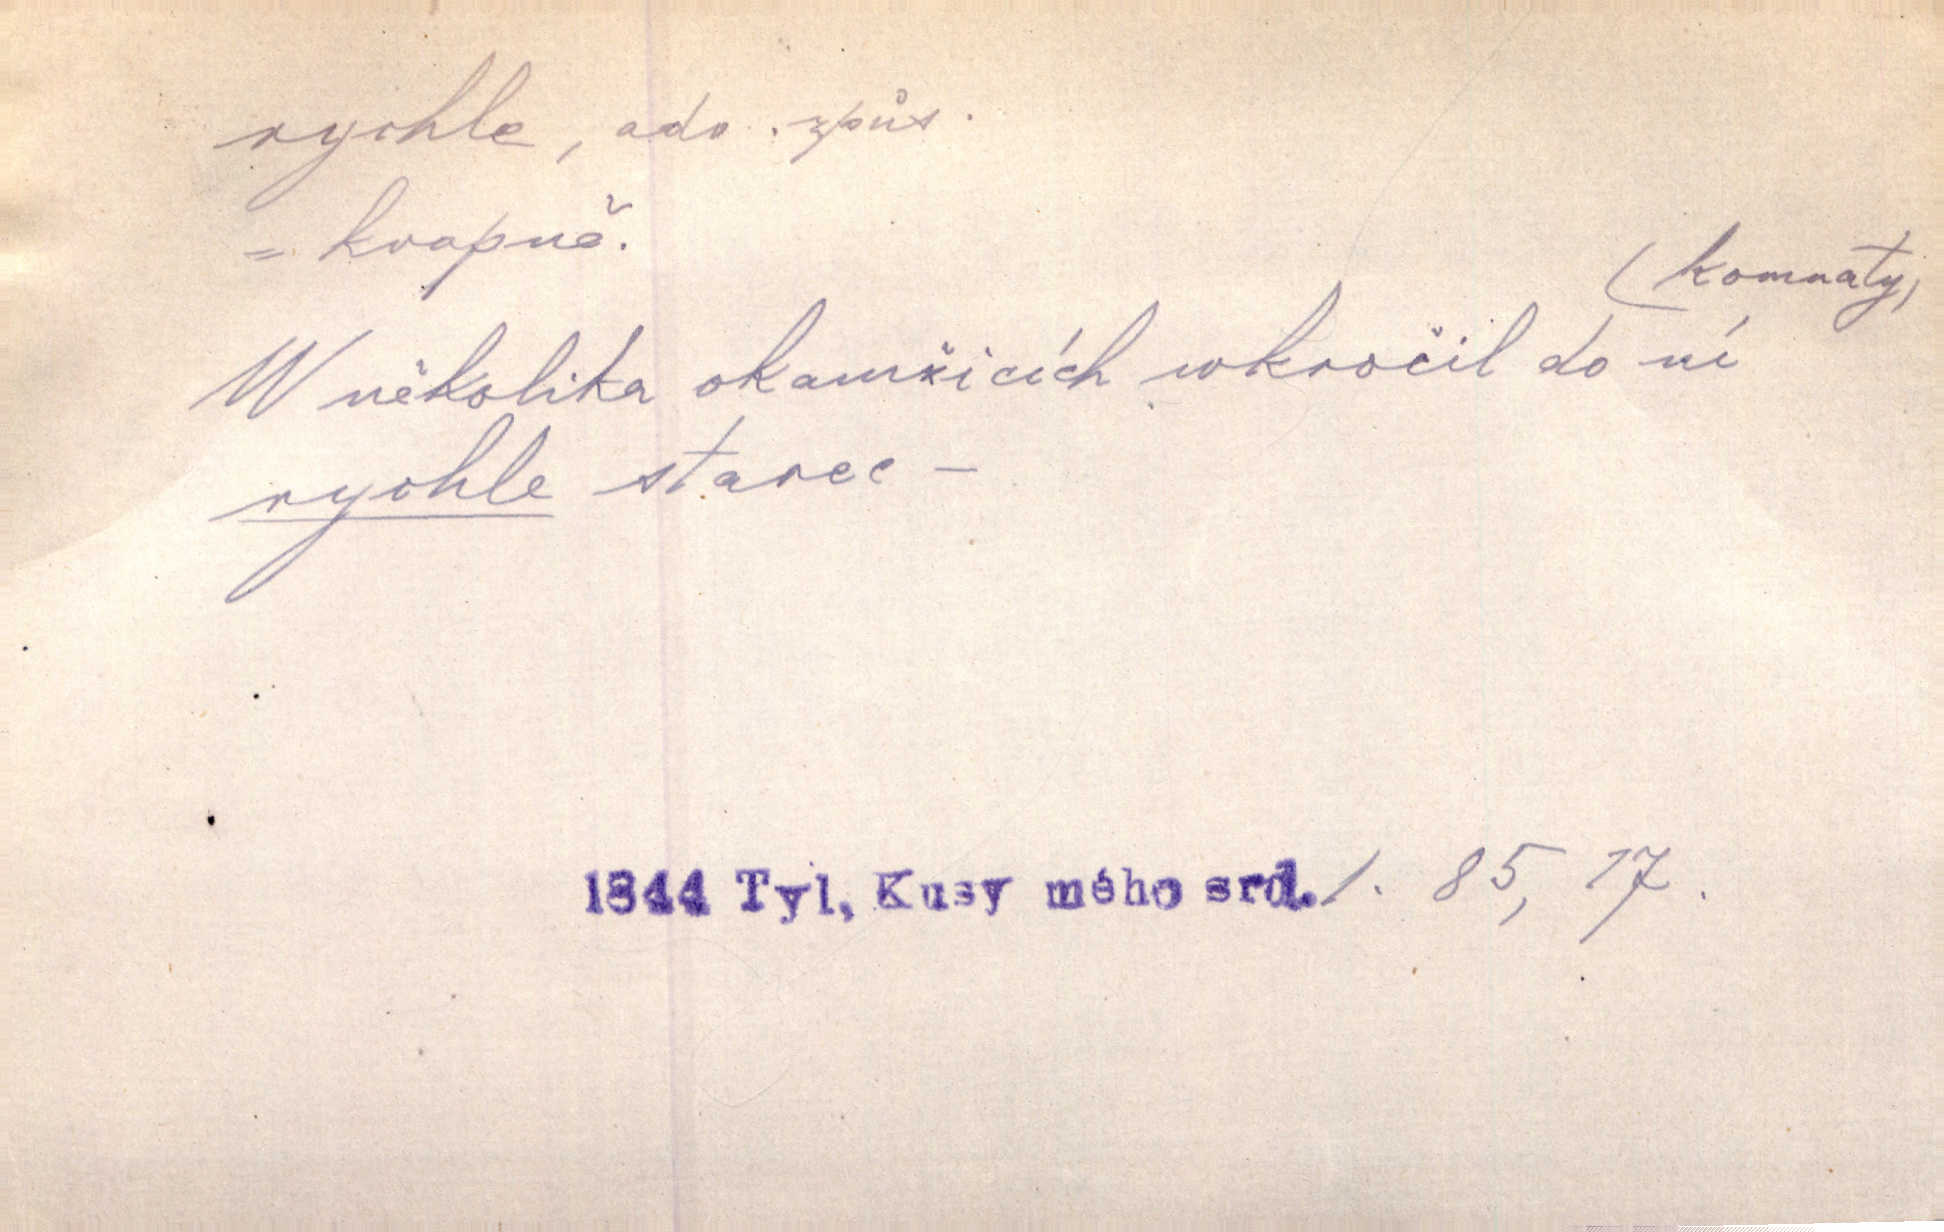 rychle, adv. způs.
= kvapně.
(komnaty)
W několika okamžicích wkročil do ní
rychle starec –
1844 Tyl, Kusy mého srd. 1. 85, 17.